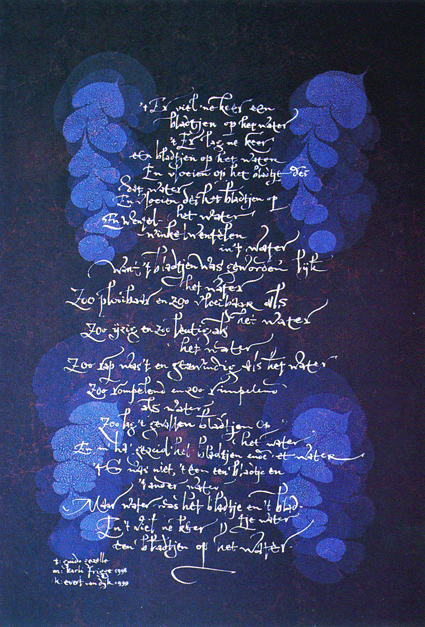 't Er viel 'ne keer een
bladtjen op het water
't Er lag ne keer
een bladtjen op het water
En vloeien op het bladtje des
dat water
En vloeien des het bladtjen op
het water
En wentel-
winkelwentelen
in 't water
Want 't bladtjen was geworden lijk
het water
Zoo plooibaar en zoo vloeibaar als
het water
Zoo ijzig en zoo leutig als
het water
Zoo rap was 't en gezwindig als het water
Zoo rompelend en zoo rimpelend
als water
Zoo lag 't gevallen bladtjen op
het water
En m' ha' gezeid het bladtjen ende 't water
't En was niet 't een een bladtje en
't ander water
Maar water was het bladtje en 't blad-
tje water
En 't viel ne keer
een bladtjen op het water
t. guido gezelle